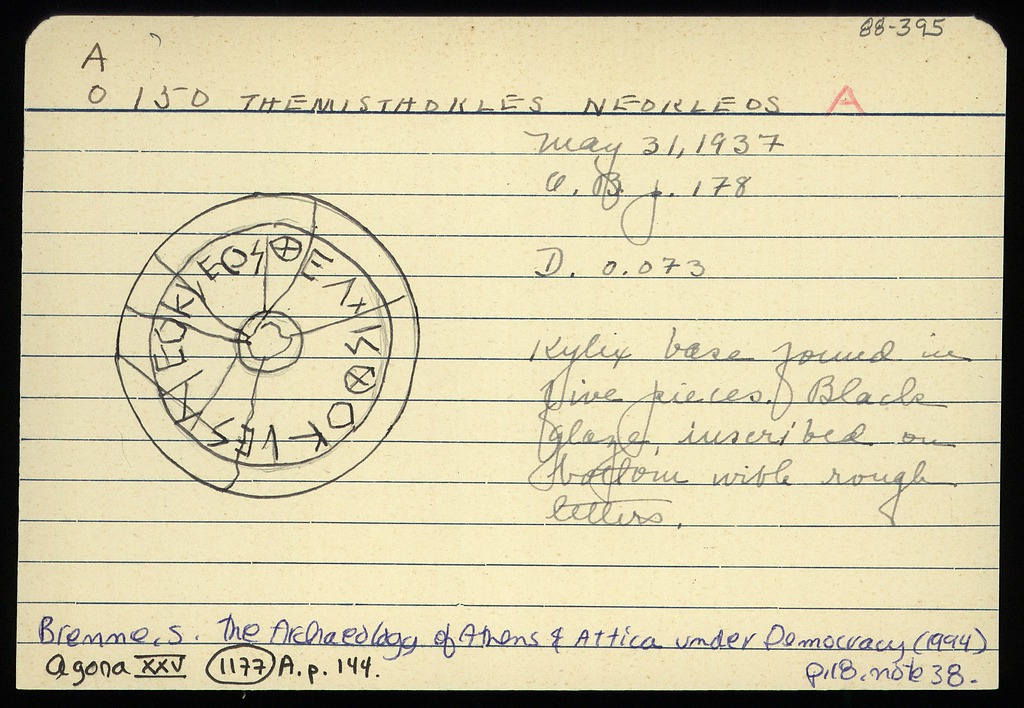 88-395
A
O 150 THEMISTHOKLES NEOKLEOS A
May 31, 1937
O. B. j. 178
D. 0.073
Kylix base found in
five pieces. Black
glaze inscribed on
bottom with rough
letters.
Bremme, S. The Archaeology of Athens & Attica under Democracy (1994)
p.18. note 38.
Agora XXV 1177 A. p. 144.